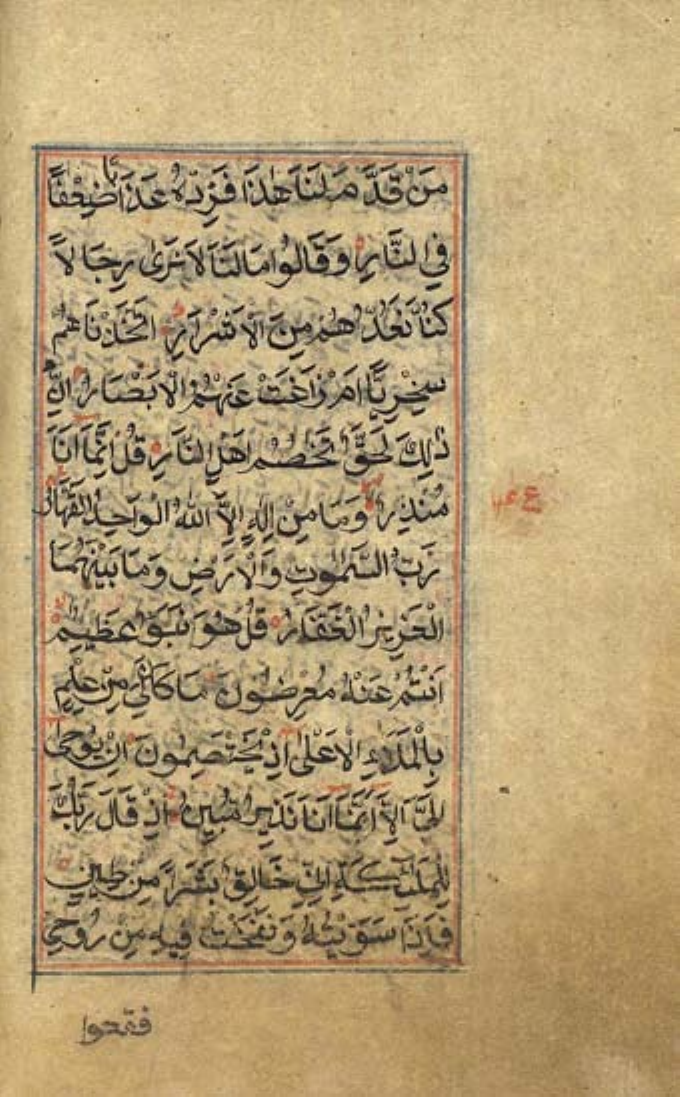 مَنْ قَدَّمَ لَنَا هٰذَا فَزِدْهُ عَذَابًا ضِعْفًا
فِي النَّارِ وَقَالُوا مَا لَنَا لَا نَرٰى رِجَالًا
كُنَّا نَعُدُّهُمْ مِنَ الْاَشْرَارِ اَتَّخَذْنَاهُمْ
سِخْرِيًّا اَمْ زَاغَتْ عَنْهُمُ الْاَبْصَارُ اِنَّ
ذٰلِكَ لَحَقٌّ تَخَاصُمُ اَهْلِ النَّارِ قُلْ اِنَّمَا اَنَا
مُنْذِرٌ وَمَا مِنْ اِلٰهٍ اِلَّا اللّٰهُ الْوَاحِدُ الْقَهَّارُ
رَبُّ السَّمٰوٰتِ وَالْاَرْضِ وَمَا بَيْنَهُمَا
الْعَزِيزُ الْغَفَّارُ قُلْ هُوَ نَبَؤٌا عَظِيمٌ
اَنْتُمْ عَنْهُ مُعْرِضُونَ مَا كَانَ لِيَ مِنْ عِلْمٍ
بِالْمَلَاِ الْاَعْلٰى اِذْ يَخْتَصِمُونَ اِنْ يُوحٰى
اِلَيَّ اِلَّا اَنَّمَا اَنَا نَذِيرٌ مُبِينٌ اِذْ قَالَ رَبُّكَ
لِلْمَلٰٓئِكَةِ اِنِّي خَالِقٌ بَشَرًا مِنْ طِينٍ
فَاِذَا سَوَّيْتُهُ وَنَفَخْتُ فِيهِ مِنْ رُوحِي